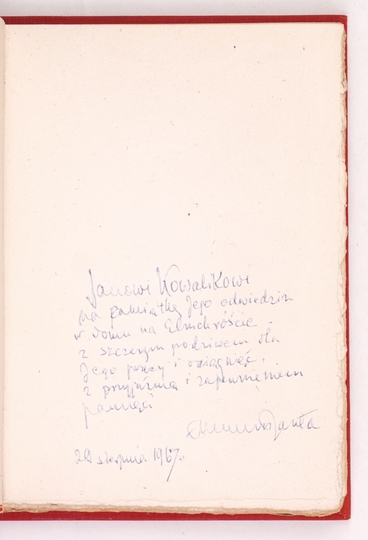 Janowi Kowalikowi
na pamiątkę Jego odwiedzin
w domu na Elmchröście
z szczerym podziwem dla
Jego pracy i osiągnięć,
z przyjaźnią i zapewnieniem
pamięci
sierpnia 1967 r.